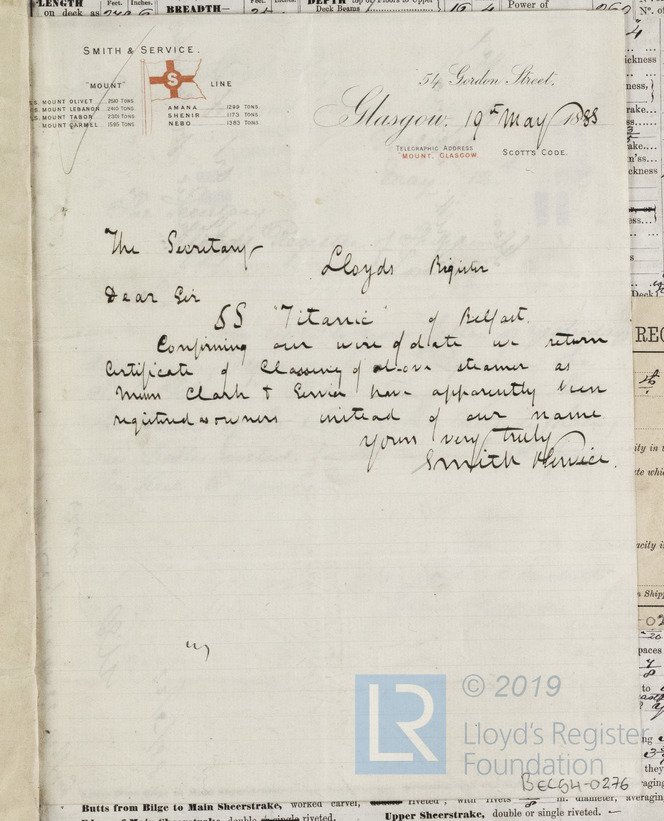 LENGTH on deck as
Feet. Inches.
BREADTH—
Feet. Inches.
DEPTH top of Floors to Upper Deck Beams
Power of
N°. of
SMITH & SERVICE.
"MOUNT" LINE
S
S.S. MOUNT OLIVET 2510 TONS.
S.S. MOUNT LEBANON 2410 TONS.
S.S. MOUNT TABOR 2301 TONS.
MOUNT CARMEL 1595 TONS.
AMANA 1299 TONS.
SHENIR 1173 TONS.
NEBO 1383 TONS.
54 Gordon Street,
Glasgow, 19th May 1888
TELEGRAPHIC ADDRESS
MOUNT, GLASGOW.
SCOTT'S CODE.
The Secretary
Lloyds Register
Dear Sir
SS "Titanic" of Belfast.
Confirming our wire of date we return
Certificate of Classing of above steamer as
Messrs Clark & Service have apparently been
registered as owners instead of our name
Yours very truly
Smith & Service.
LR
© 2019
Lloyd's Register
Foundation
BELGH-0276
Butts from Bilge to Main Sheerstrake, worked carvel, double riveted; with rivets in. diameter, averaging
Edges of Main Sheerstrake, double or single riveted.
Upper Sheerstrake, double or single riveted.